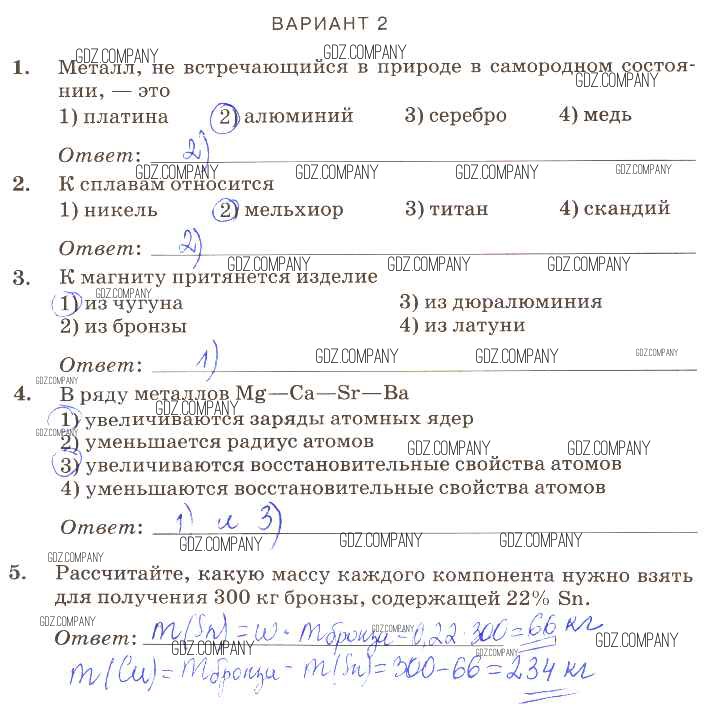 ВАРИАНТ 2
GDZ.COMPANY GDZ.COMPANY
1. Металл, не встречающийся в природе в самородном состоя-
GDZ.COMPANY
нии, — это
1) платина 2) алюминий 3) серебро 4) медь
Ответ: 2)
GDZ.COMPANY GDZ.COMPANY GDZ.COMPANY GDZ.COMPANY
2. К сплавам относится
1) никель 2) мельхиор 3) титан 4) скандий
Ответ: 2)
GDZ.COMPANY GDZ.COMPANY GDZ.COMPANY
3. К магниту притянется изделие
GDZ.COMPANY
1) из чугуна 3) из дюралюминия
2) из бронзы 4) из латуни
Ответ: 1) GDZ.COMPANY GDZ.COMPANY GDZ.COMPANY
GDZ.COMPANY
4. В ряду металлов Mg—Ca—Sr—Ba
GDZ.COMPANY
1) увеличиваются заряды атомных ядер
GDZ.COMPANY
2) уменьшается радиус атомов
GDZ.COMPANY GDZ.COMPANY
3) увеличиваются восстановительные свойства атомов
4) уменьшаются восстановительные свойства атомов
Ответ: 1) и 3)
GDZ.COMPANY GDZ.COMPANY GDZ.COMPANY
GDZ.COMPANY
5. Рассчитайте, какую массу каждого компонента нужно взять
для получения 300 кг бронзы, содержащей 22% Sn.
GDZ.COMPANY GDZ.COMPANY
Ответ: m(Sn) = w · m бронзи = 0,22·300 = 66 кг
GDZ.COMPANY GDZ.COMPANY GDZ.COMPANY
m(Cu) = m бронзи - m(Sn) = 300 - 66 = 234 кг